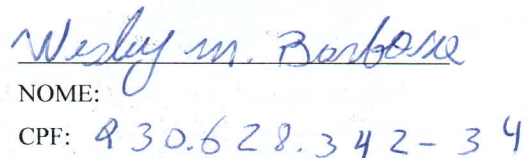 Wesley m. Barbosa
NOME:
CPF: 930.628.342-34